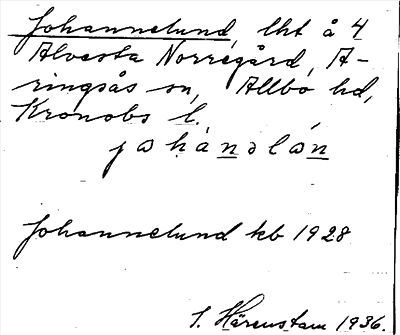 Johannelund, lht å 4
Alvesta Norregård, A-
ringsås sn, Allbo hd,
Kronobs l.
Johannelund kb 1928
S. Härenstam 1936.